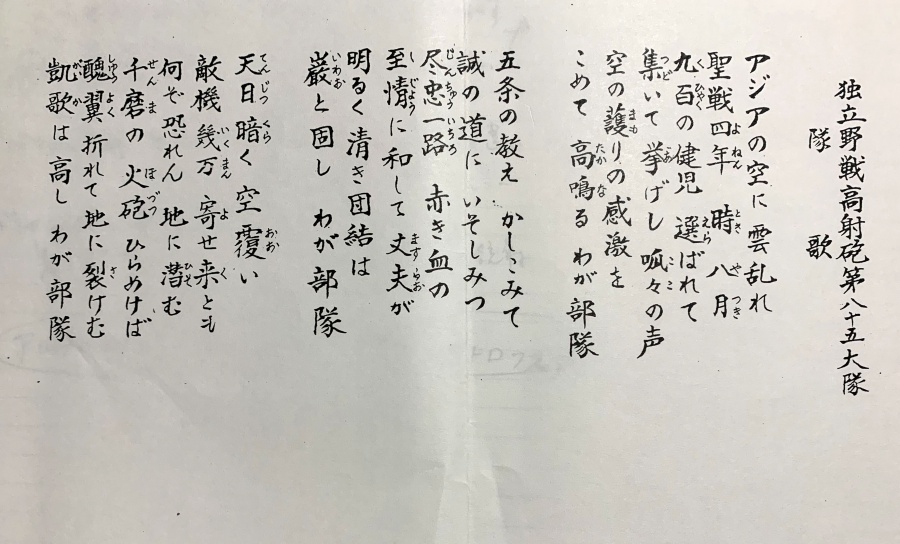 独立野戦高射砲第八十五大隊
隊歌
アジアの空に雲乱れ
聖戦四年 時八月
九百の健児 選ばれて
集いて挙げし呱々の声
空の護りの感激を
こめて高鳴る わが部隊
五条の教え かしこみて
誠の道に いそしみつ
尽忠一路 赤き血の
至情に和して丈夫が
明るく清き団結は
巌と固し わが部隊
天日暗く空覆い
敵機幾万 寄せ来とも
何ぞ恐れん 地に潜む
千磨の火砲ひらめけば
醜翼折れて地に裂けむ
凱歌は高し わが部隊